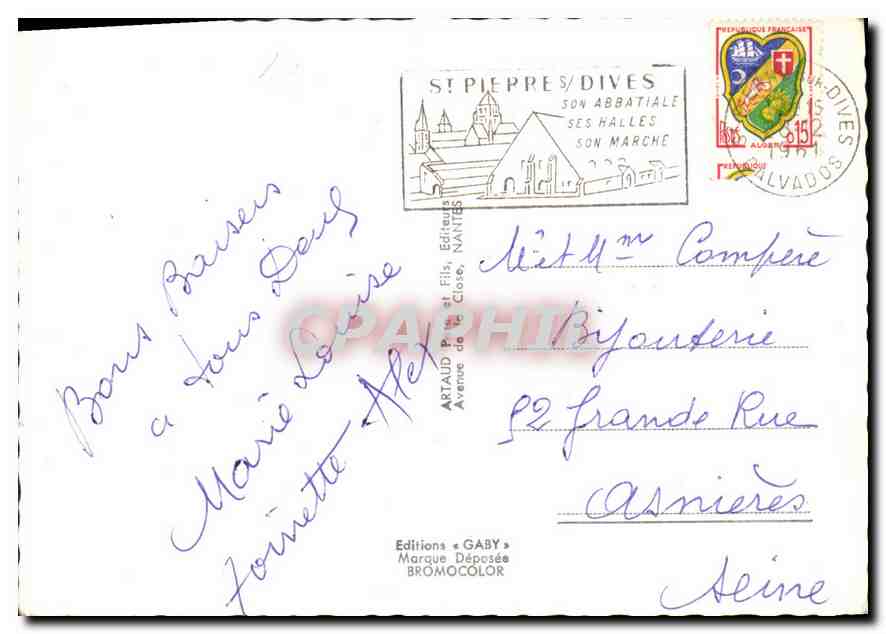 ST PIERRE S/DIVES
SON ABBATIALE
SES HALLES
SON MARCHE
REPUBLIQUE FRANÇAISE
0,15
ALGER
REPUBLIQUE
DIVES
15
1961
CALVADOS
Bons Baisers
a tous Dany
Marie Louise
Toinette Alex
ARTAUD Père et Fils, Editeurs
Avenue de la Close, NANTES
CPAPHIL
Mr et Mme Compère
Bijouterie
92 Grande Rue
Asnières
Seine
Editions « GABY »
Marque Déposée
BROMOCOLOR